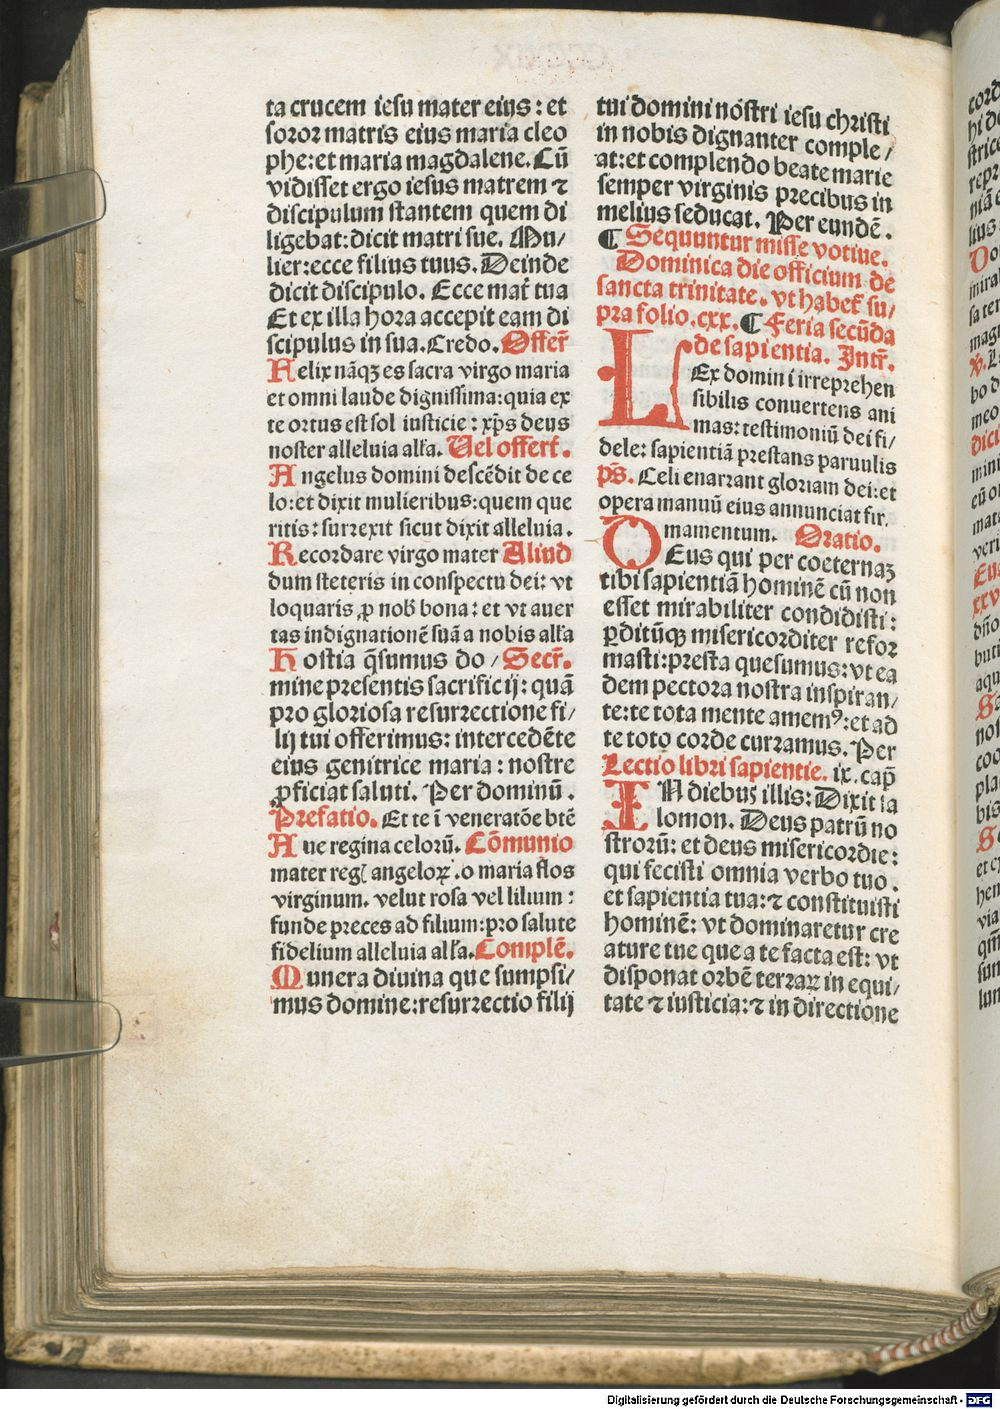 ta crucem iesu mater eiꝰ: et
soror matris eius maria cleo
phe: et maria magdalene. Cū
vidisset ergo iesus matrem ⁊
discipulum stantem quem di
ligebat: dicit matri sue. Mu/
lier: ecce filius tuus. Deinde
dicit discipulo. Ecce mat̄ tua
Et ex illa hora accepit eam di
scipulus in sua. Credo. Offer̄
Felix nāqꝫ es sacra virgo maria
et omni laude dignissima: quia ex
te ortus est sol iusticie: xp̄s deus
noster alleluia all'a. Uel offert̄.
Angelus domini descēdit de ce
lo: et dixit mulieribus: quem que
ritis: surrexit sicut dixit alleluia.
Recordare virgo mater Aliud
dum steteris in conspectu dei: vt
loquaris ꝓ nob̄ bona: et vt auer
tas indignationē suā a nobis all'a
Hostia q̄sumus do/ Secr̄.
mine presentis sacrificij: quā
pro gloriosa resurrectione fi/
lij tui offerimus: intercedēte
eius genitrice maria: nostre
ꝓficiat saluti. Per dominū.
Prefatio. Et te ī veneratōe btē
Aue regina celorū. Cōmunio
mater reḡ angeloꝝ. o maria flos
virginum. velut rosa vel lilium:
funde preces ad filium: pro salute
fidelium alleluia all'a. Complē.
Munera diuina que sumpsi/
mus domine: resurrectio filij
tui domini nostri iesu christi
in nobis dignanter comple/
at: et complendo beate marie
semper virginis precibus in
melius seducat. Per eundē.
¶ Sequuntur misse votiue.
Dominica die officium de
sancta trinitate. vt habet̄ su/
pra folio. cxx. ¶ Feria secūda
de sapientia. Intr̄.
LEx domini irreprehen
sibilis conuertens ani
mas: testimoniū dei fi/
dele: sapientiā prestans paruulis
ps̄. Celi enarrant gloriam dei: et
opera manuū eius annunciat fir.
mamentum. Oratio.
DEus qui per coeternaꝫ
tibi sapientiā hominē cū non
esset mirabiliter condidisti:
ꝑditūqꝫ misericorditer refor
masti: presta quesumus: vt ea
dem pectora nostra inspiran/
te: te tota mente amemꝰ: et ad
te toto corde curramus. Per
Lectio libri sapientie. ix. cap̄
IN diebus illis: Dixit sa
lomon. Deus patrū no
strorū: et deus misericordie:
qui fecisti omnia verbo tuo.
et sapientia tua: ⁊ constituisti
hominē: vt dominaretur cre
ature tue que a te facta est: vt
disponat orbē terraꝝ in equi/
tate ⁊ iusticia: ⁊ in directione
Digitalisierung gefördert durch die Deutsche Forschungsgemeinschaft - DFG